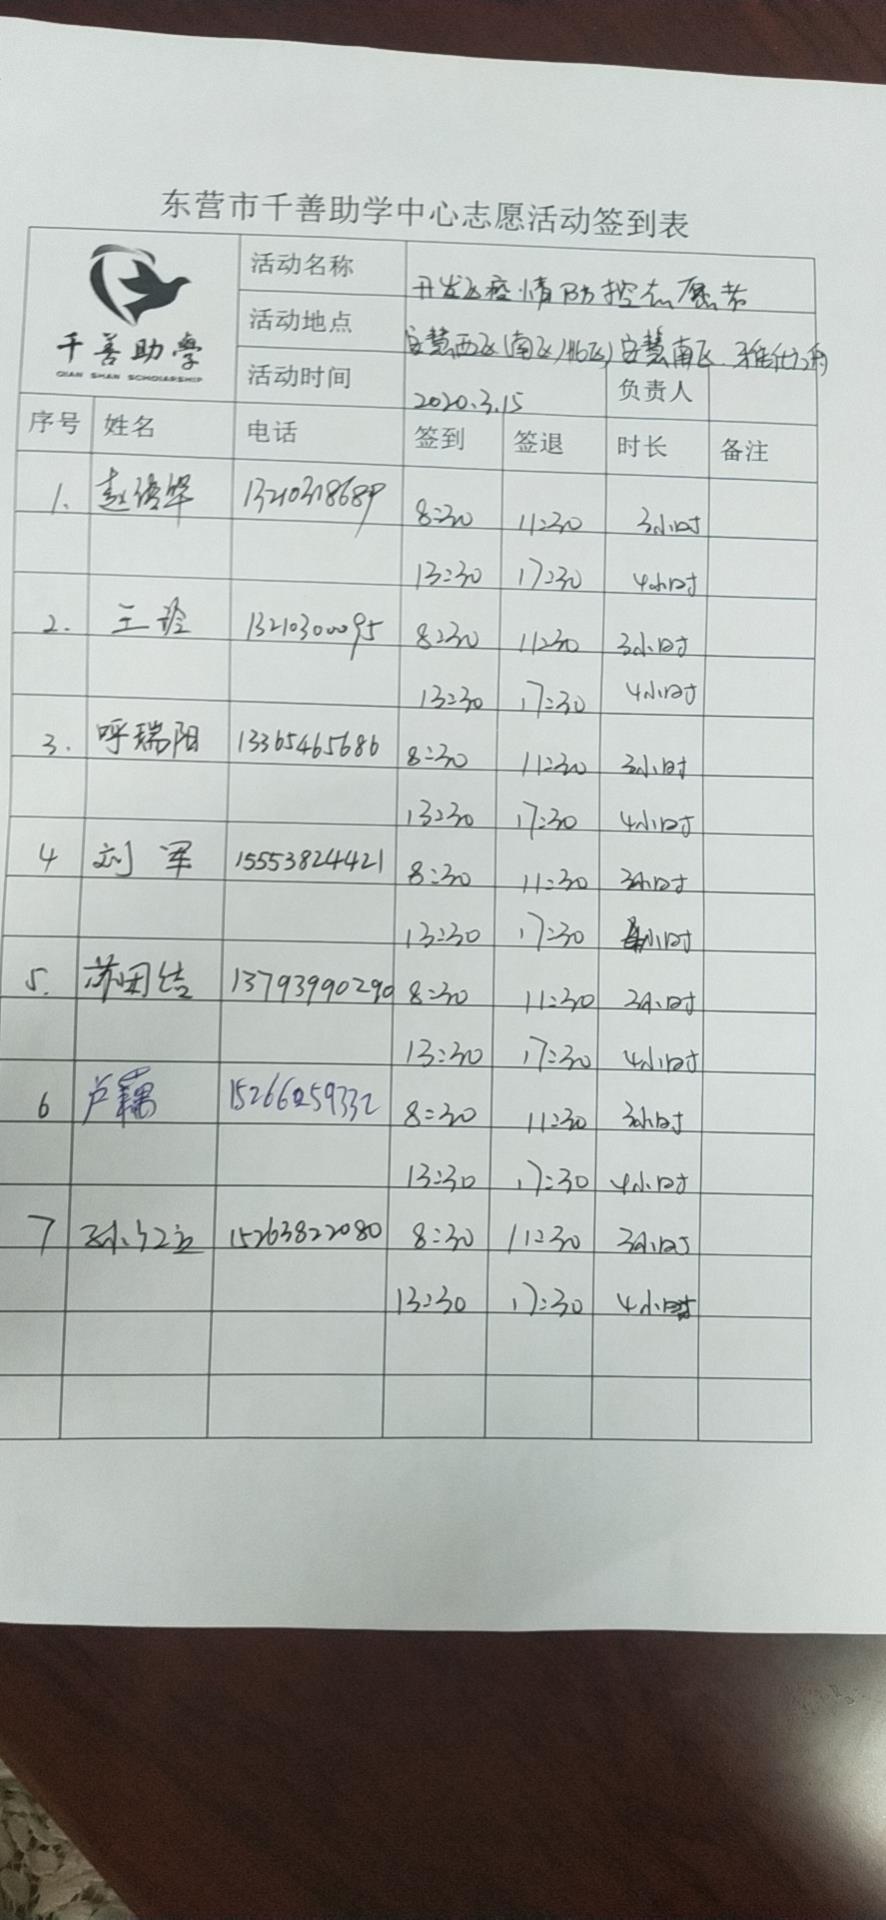 东营市千善助学中心志愿活动签到表
千善助學
QIAN SHAN SCHOLARSHIP
活动名称 开发区疫情防控志愿者
活动地点 安慧西区(南区)(北区)安慧南区.
活动时间 2020.3.15 负责人
序号 姓名 电话 签到 签退 时长 备注
1. 赵 13210318689 8:30 11:30 3小时
13:30 17:30 4小时
2. 王玲 13210300095 8:30 11:30 3小时
13:30 17:30 4小时
3. 呼瑞阳 13365465686 8:30 11:30 3小时
13:30 17:30 4小时
4 刘军 15553824421 8:30 11:30 3小时
13:30 17:30 4小时
5. 苏团结 13793990290 8:30 11:30 3小时
13:30 17:30 4小时
6 卢 15266259332 8:30 11:30 3小时
13:30 17:30 4小时
7 孙红立 15263822080 8:30 11:30 3小时
13:30 17:30 4小时